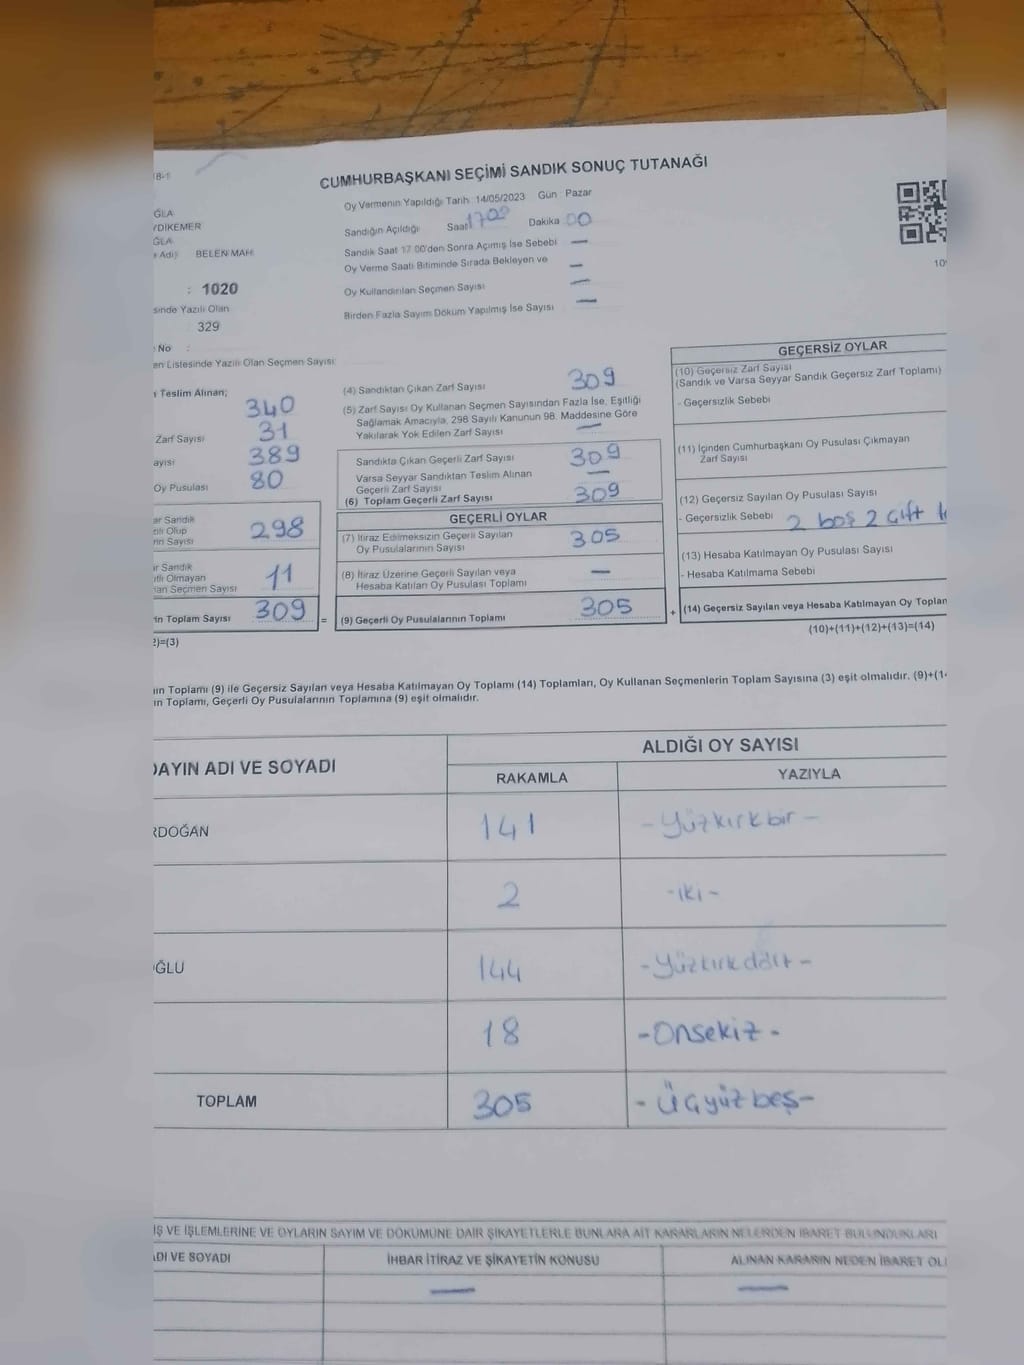 18-1
CUMHURBAŞKANI SEÇİMİ SANDIK SONUÇ TUTANAĞI
Oy Vermenin Yapıldığı Tarih: 14/05/2023 Gün : Pazar
ĞLA
YDİKEMER
ĞLA
Adı) BELEN MAH.
Sandığın Açıldığı Saat 1700 Dakika 00
Sandık Saat 17:00'den Sonra Açımış İse Sebebi —
Oy Verme Saati Bitiminde Sırada Bekleyen ve
Oy Kullandırılan Seçmen Sayısı —
Birden Fazla Sayım Döküm Yapılmış İse Sayısı —
: 1020
sinde Yazılı Olan
329
No :
en Listesinde Yazılı Olan Seçmen Sayısı:
Teslim Alınan;
340
Zarf Sayısı 31
ayısı 389
Oy Pusulası 80
ar Sandık
zılı Olup
rin Sayısı 298
ır Sandık
ıtlı Olmayan
nan Seçmen Sayısı 11
in Toplam Sayısı 309 =
2)=(3)
(4) Sandıktan Çıkan Zarf Sayısı 309
(5) Zarf Sayısı Oy Kullanan Seçmen Sayısından Fazla İse, Eşitliği
Sağlamak Amacıyla, 298 Sayılı Kanunun 98. Maddesine Göre
Yakılarak Yok Edilen Zarf Sayısı —
Sandıkta Çıkan Geçerli Zarf Sayısı 309
Varsa Seyyar Sandıktan Teslim Alınan
Geçerli Zarf Sayısı —
(6) Toplam Geçerli Zarf Sayısı 309
GEÇERLİ OYLAR
(7) İtiraz Edilmeksizin Geçerli Sayılan
Oy Pusulalarının Sayısı 305
(8) İtiraz Üzerine Geçerli Sayılan veya
Hesaba Katılan Oy Pusulası Toplamı —
(9) Geçerli Oy Pusulalarının Toplamı 305 +
GEÇERSİZ OYLAR
(10) Geçersiz Zarf Sayısı
(Sandık ve Varsa Seyyar Sandık Geçersiz Zarf Toplamı)
- Geçersizlik Sebebi
(11) İçinden Cumhurbaşkanı Oy Pusulası Çıkmayan
Zarf Sayısı
(12) Geçersiz Sayılan Oy Pusulası Sayısı
- Geçersizlik Sebebi 2 boş 2 çift
(13) Hesaba Katılmayan Oy Pusulası Sayısı
- Hesaba Katılmama Sebebi
(14) Geçersiz Sayılan veya Hesaba Katılmayan Oy Toplam
(10)+(11)+(12)+(13)=(14)
ın Toplamı (9) ile Geçersiz Sayılan veya Hesaba Katılmayan Oy Toplamı (14) Toplamları, Oy Kullanan Seçmenlerin Toplam Sayısına (3) eşit olmalıdır. (9)+(14
ın Toplamı, Geçerli Oy Pusulalarının Toplamına (9) eşit olmalıdır.
DAYIN ADI VE SOYADI
ALDIĞI OY SAYISI
RAKAMLA YAZIYLA
RDOĞAN 141 - Yüzkırkbir -
2 - iki -
OĞLU 144 - Yüzkırkdört -
18 - Onsekiz -
TOPLAM 305 - Üçyüzbeş -
İŞ VE İŞLEMLERİNE VE OYLARIN SAYIM VE DÖKÜMÜNE DAİR ŞİKAYETLERLE BUNLARA AİT KARARLARIN NELERDEN İBARET BULUNDUKLARI
ADI VE SOYADI İHBAR İTİRAZ VE ŞİKAYETİN KONUSU ALINAN KARARIN NEDEN İBARET OL
— —